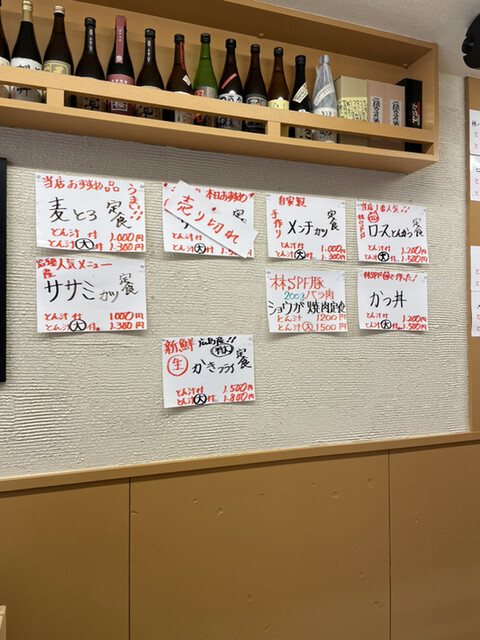 当店おすすめ品
うまい!!
麦とろ定食
とん汁付 1.000円
とん汁大付. 1.300円
本日おすすめ
売り切れ
自家製
手作り
メンチカツ定食
とん汁付 1.000円
とん汁大付. 1.300円
当店1番人気!!
ロースとんかつ定食
とん汁付 1.200円
とん汁大付. 1.500円
人気メニュー
ササミカツ定食
とん汁付 1000円
とん汁大付. 1.300円
林SPF豚
200gバラ肉
ショウガ焼肉定食
とん汁 1200円
とん汁大 1500円
かつ丼
とん汁付 1.200円
とん汁大付. 1.500円
新鮮
広島産
生かきフライ定食
とん汁付 1.500円
とん汁大付. 1.800円